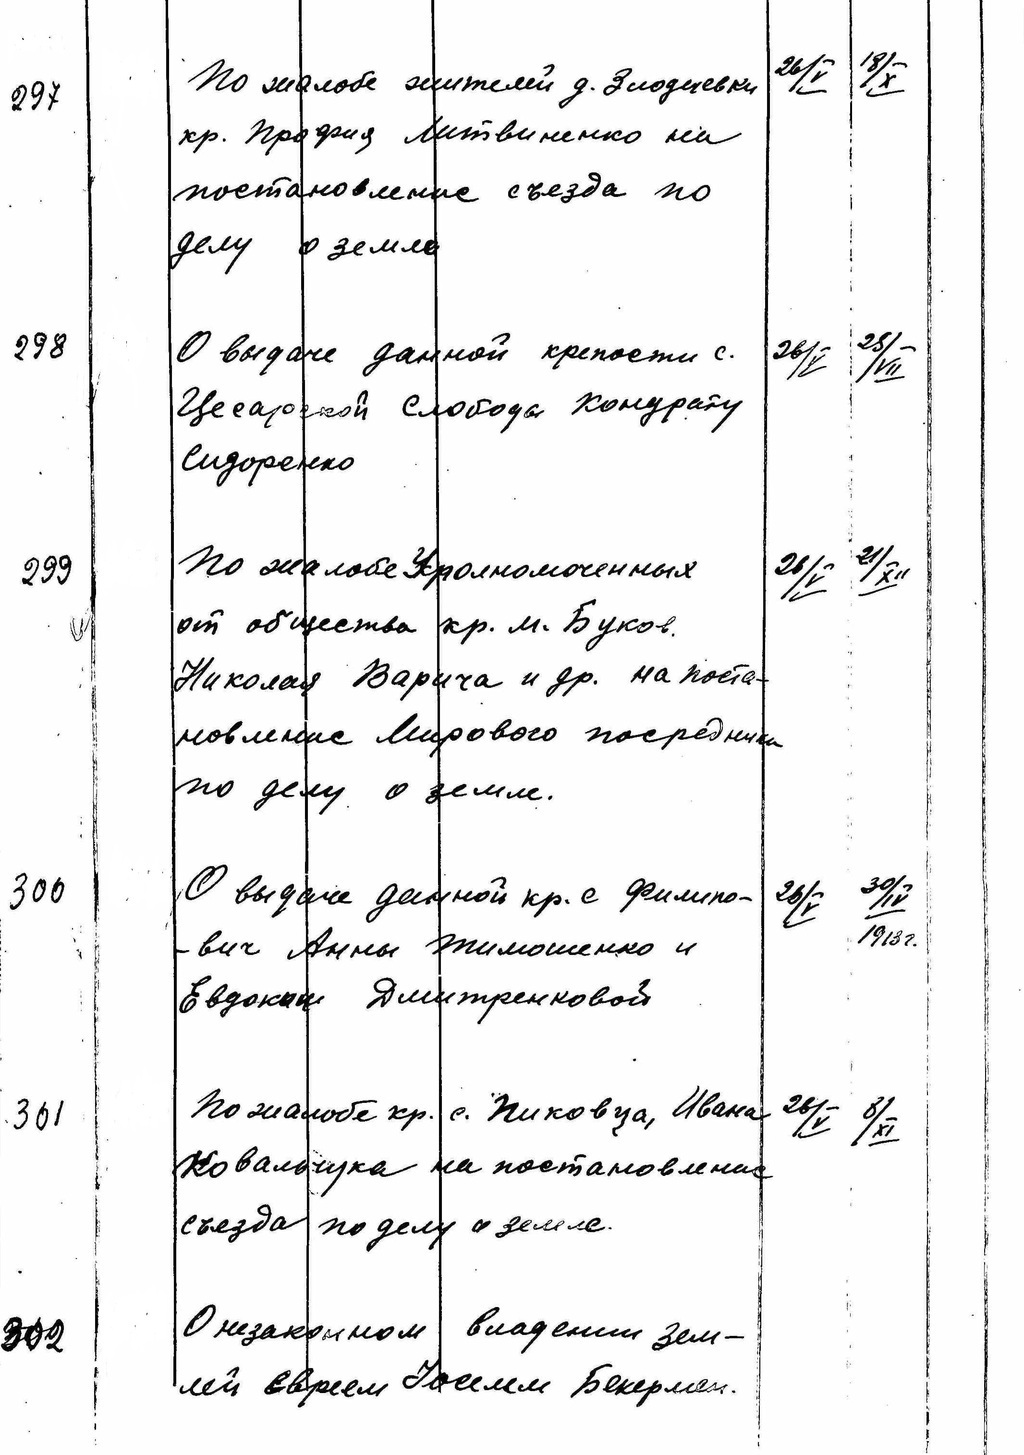 297 По жалобе жителей д. Злодиевки 26/V 18/X
кр. Профия Литвиненко на
постановление съезда по
делу о земле
298 О выдаче данной крепости с. 26/V 28/VII
Цесарской Слободы Кондрату
Сидоренко
299 По жалобе Уполномоченных 26/V 21/XII
от общества кр. м. Буков.
Николая Варича и др. на поста-
новление Мирового посредника
по делу о земле.
300 О выдаче данной кр. с Филипо- 26/V 30/IV
-вич Анны Тимошенко и 1913 г.
Евдокии Дмитренковой
301 По жалобе кр. с. Пиковца, Ивана 26/V 8/XI
Ковальчука на постановление
съезда по делу о земле.
302 О незаконном владении зем-
лей евреем Иоселем Бекерман.